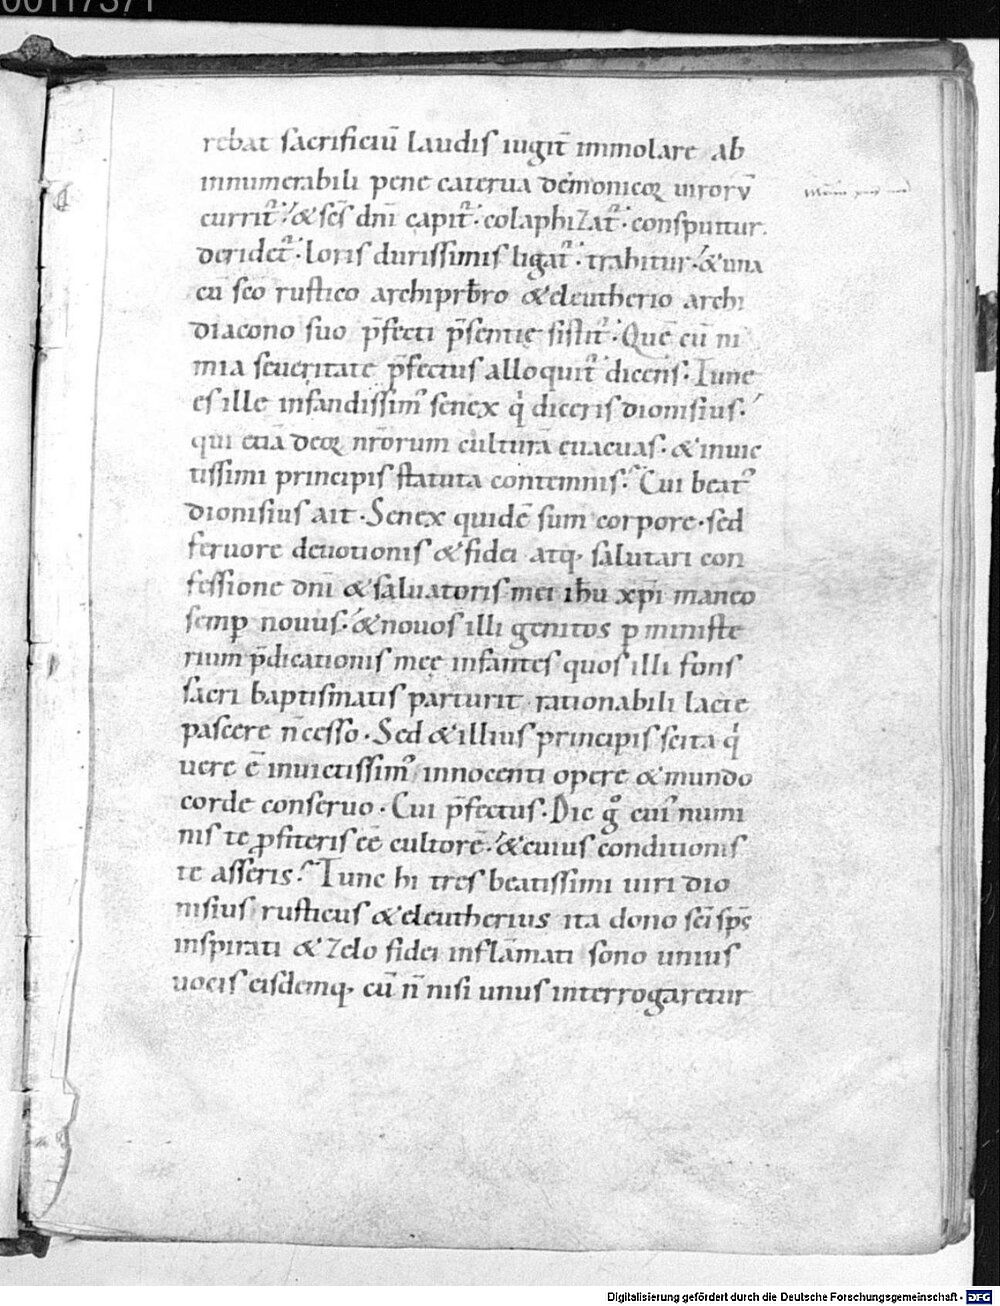 00117371
rebat sacrificiū laudis iugit̄ immolare ab
innumerabili pene caterua demonicoꝝ uiroꝝ
currit᷑. & scs dnī capit᷑. colaphizat᷑. conspuitur.
deridet᷑. loris durissimis ligat᷑. trahitur. & una
cū sco rustico archiprbro & eleutherio archi
diacono suo p̄fecti p̄sentię sistit᷑. Quē cū ni
mia seueritate p̄fectus alloquit᷑ dicens. Tune
es ille infandissim᷒ senex q̇ diceris dionisius.
qui etiā deoꝝ nrōrum culturā euacuas. & inuic
tissimi principis statuta contemnis. Cui beat᷒
dionisius ait. Senex quidē sum corpore. sed
feruore deuotionis & fidei atq; salutari con
fessione dnī & saluatoris mei ihu xpi maneo
semp nouus. & nouos illi genitos p ministe
rium p̄dicationis meę infantes quos illi fons
sacri baptismatis parturit rationabili lacte
pascere n̄ cesso. Sed & illius principis scita q̇
uere ē inuictissim᷒ innocenti opere & mundo
corde conseruo. Cui p̄fectus. Dic gͦ cui᷒ numi
nis te ꝓfiteris eē cultorē. & cuius conditionis
te asseris. Tunc hi tres beatissimi uiri dio
nisius rusticus & eleutherius ita dono sci sps
inspirati & zelo fidei inflāmati sono unius
uocis eisdemq; cū n̄ nisi unus interrogaretur
Digitalisierung gefördert durch die Deutsche Forschungsgemeinschaft - DFG